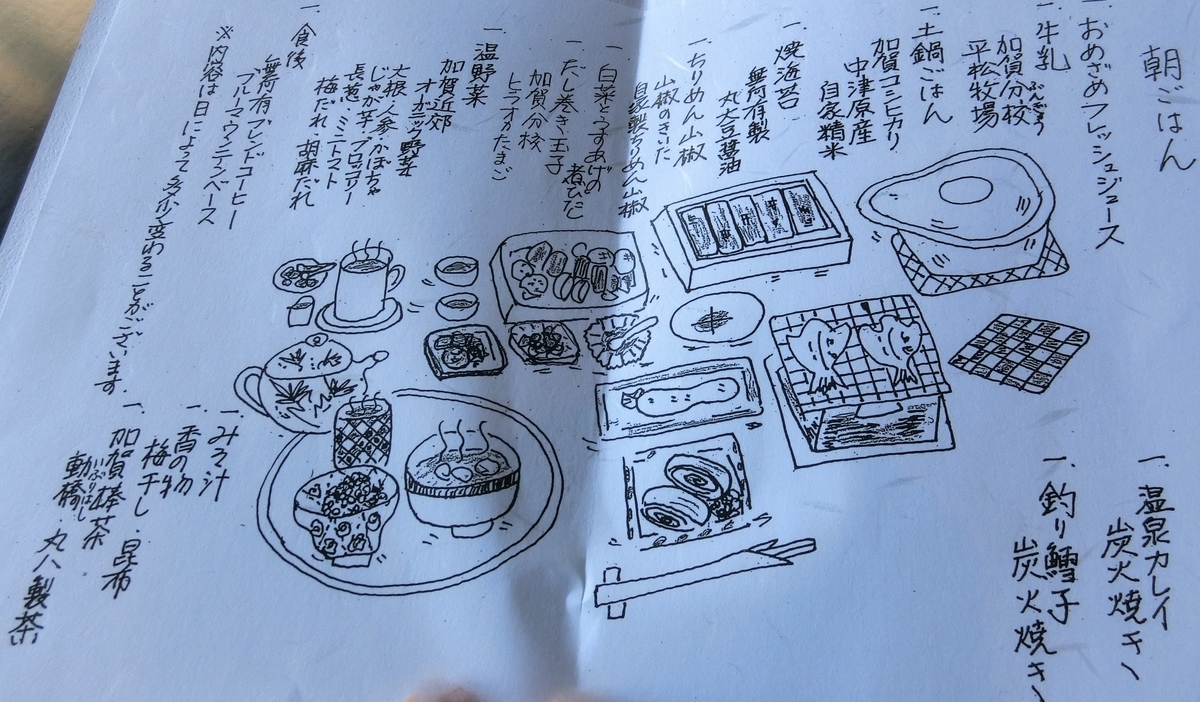 朝ごはん
一、おめざめフレッシュジュース
一、牛乳
加賀分校
平松牧場
一、土鍋ごはん
加賀コシヒカリ
中津原産
自家精米
一、焼海苔
無何有製
丸大豆醤油
一、ちりめん山椒
山椒のきいた
自家製ちりめん山椒
一、白菜とうすあげの
煮びたし
一、だし巻き玉子
加賀分校
ヒラオカたまご
一、温野菜
加賀近郊
オーガニック野菜
大根・人参・かぼちゃ
じゃが芋・ブロッコリー
長葱・ミニトマト
梅だれ・胡麻だれ
一、食後
無何有ブレンドコーヒー
ブルーマウンテンベース
※内容は日によって多少変わることがございます。
一、温泉カレイ
炭火焼き
一、釣り鱈子
炭火焼き
一、みそ汁
一、香の物
梅干し・昆布
一、加賀棒茶
いぶりはし
動橋・丸八製茶